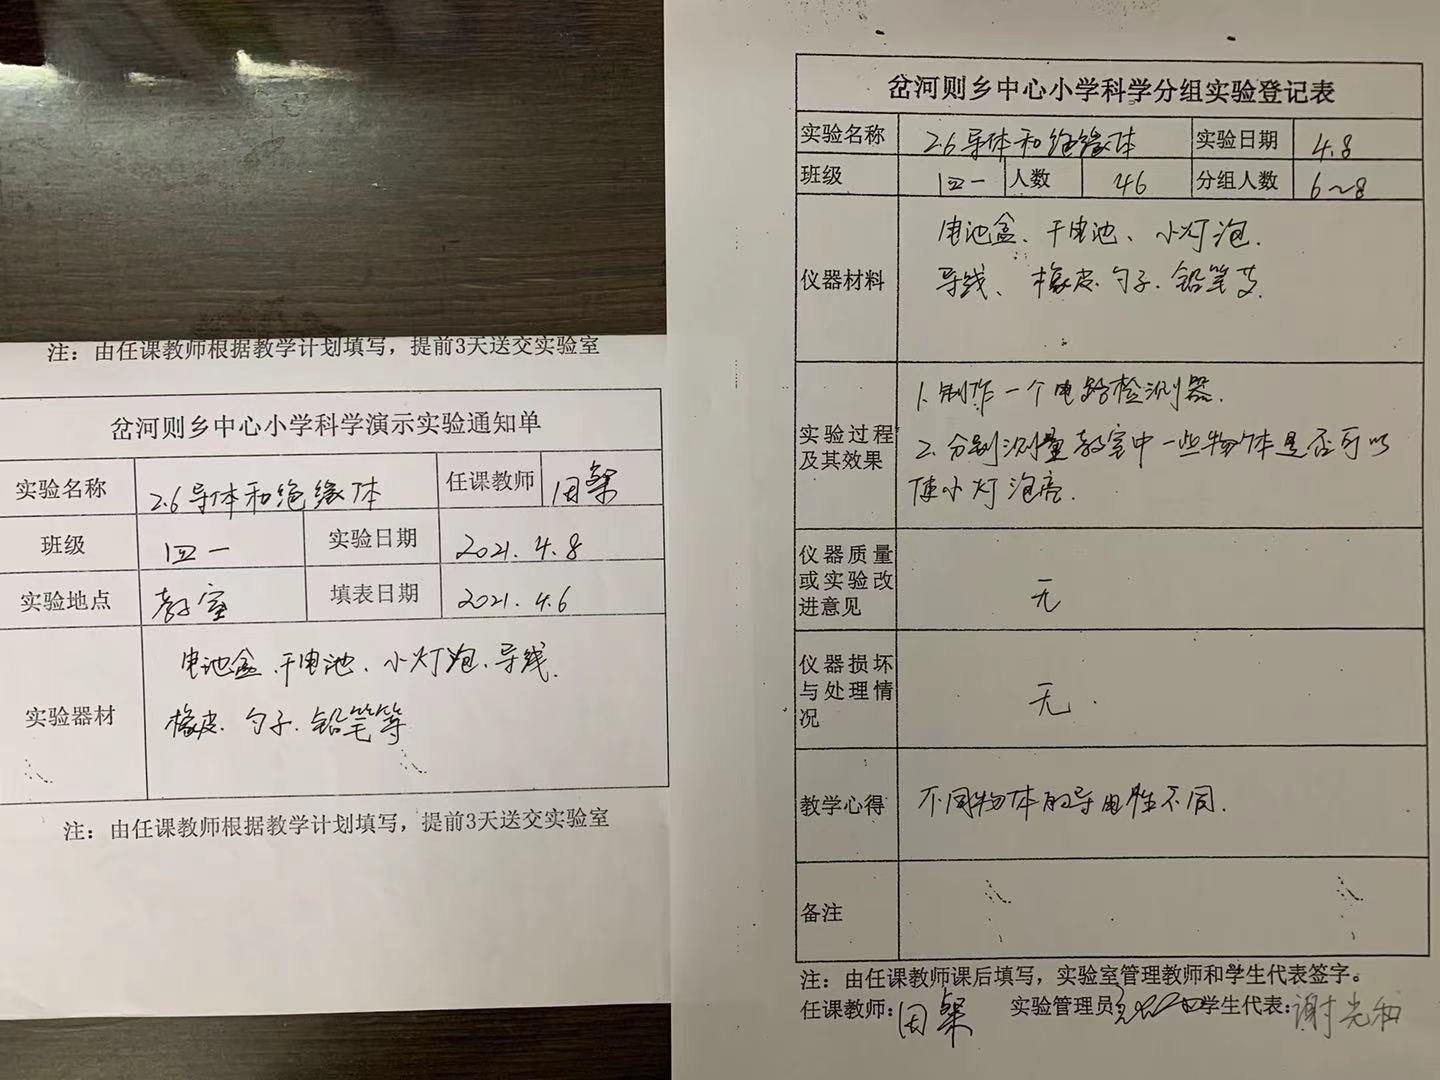 注：由任课教师根据教学计划填写，提前3天送交实验室
岔河则乡中心小学科学演示实验通知单
实验名称 2.6导体和绝缘体 任课教师
班级 四一 实验日期 2021.4.8
实验地点 教室 填表日期 2021.4.6
实验器材
电池盒、干电池、小灯泡、导线、
橡皮、勺子、铅笔等
注：由任课教师根据教学计划填写，提前3天送交实验室
岔河则乡中心小学科学分组实验登记表
实验名称 2.6导体和绝缘体 实验日期 4.8
班级 四一 人数 46 分组人数 6~8
仪器材料
电池盒、干电池、小灯泡、
导线、橡皮、勺子、铅笔
实验过程
及其效果
1.制作一个电路检测器.
2.分别测量教室中一些物体是否可以
使小灯泡亮.
仪器质量
或实验改
进意见
无
仪器损坏
与处理情
况
无.
教学心得 不同物体的导电性不同.
备注
注：由任课教师课后填写，实验室管理教师和学生代表签字。
任课教师: 实验管理员 学生代表:谢光和